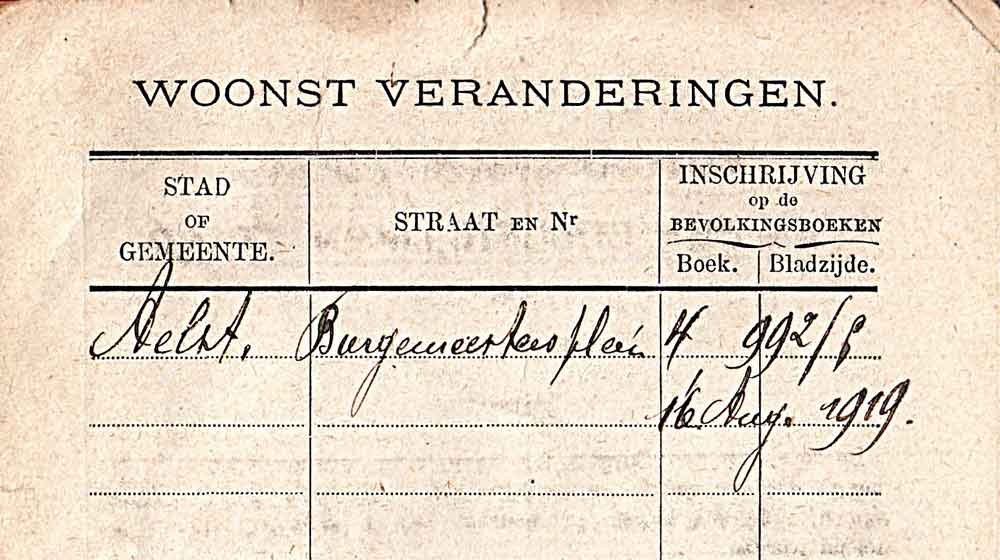 WOONST VERANDERINGEN.
STAD OF GEMEENTE.
STRAAT EN Nr
INSCHRIJVING
op de
BEVOLKINGSBOEKEN
Boek. Bladzijde.
Aelst. Burgemeestersplein 4 992/
16 Aug. 1919.